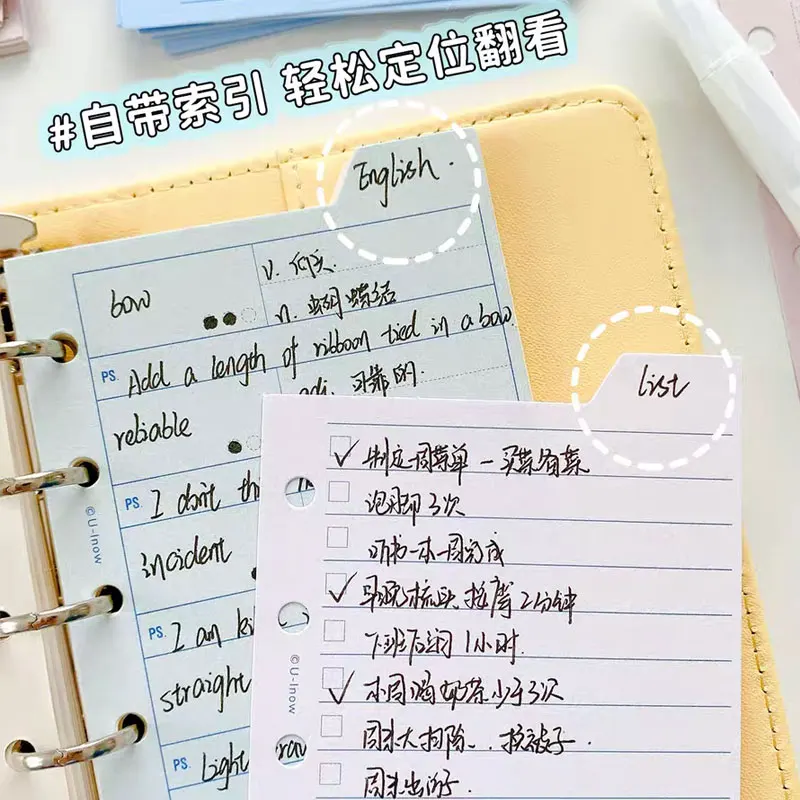 #自带索引 轻松定位翻看
English.
bow
v. 低头
n. 蝴蝶结
PS. Add a length of ribbon tied in a bow.
reliable
adj. 可靠的.
PS. I don't th
incident
PS. I am ki
straight
PS. Light
© U-Inow
list
制定一周菜单 – 买菜备菜
泡脚3次
听书一本一周完成
早晚梳头 按摩2分钟
下班后 1小时.
本周喝奶茶少于3次
周末大扫除.. 换被子.
周末出门.
© U-Inow